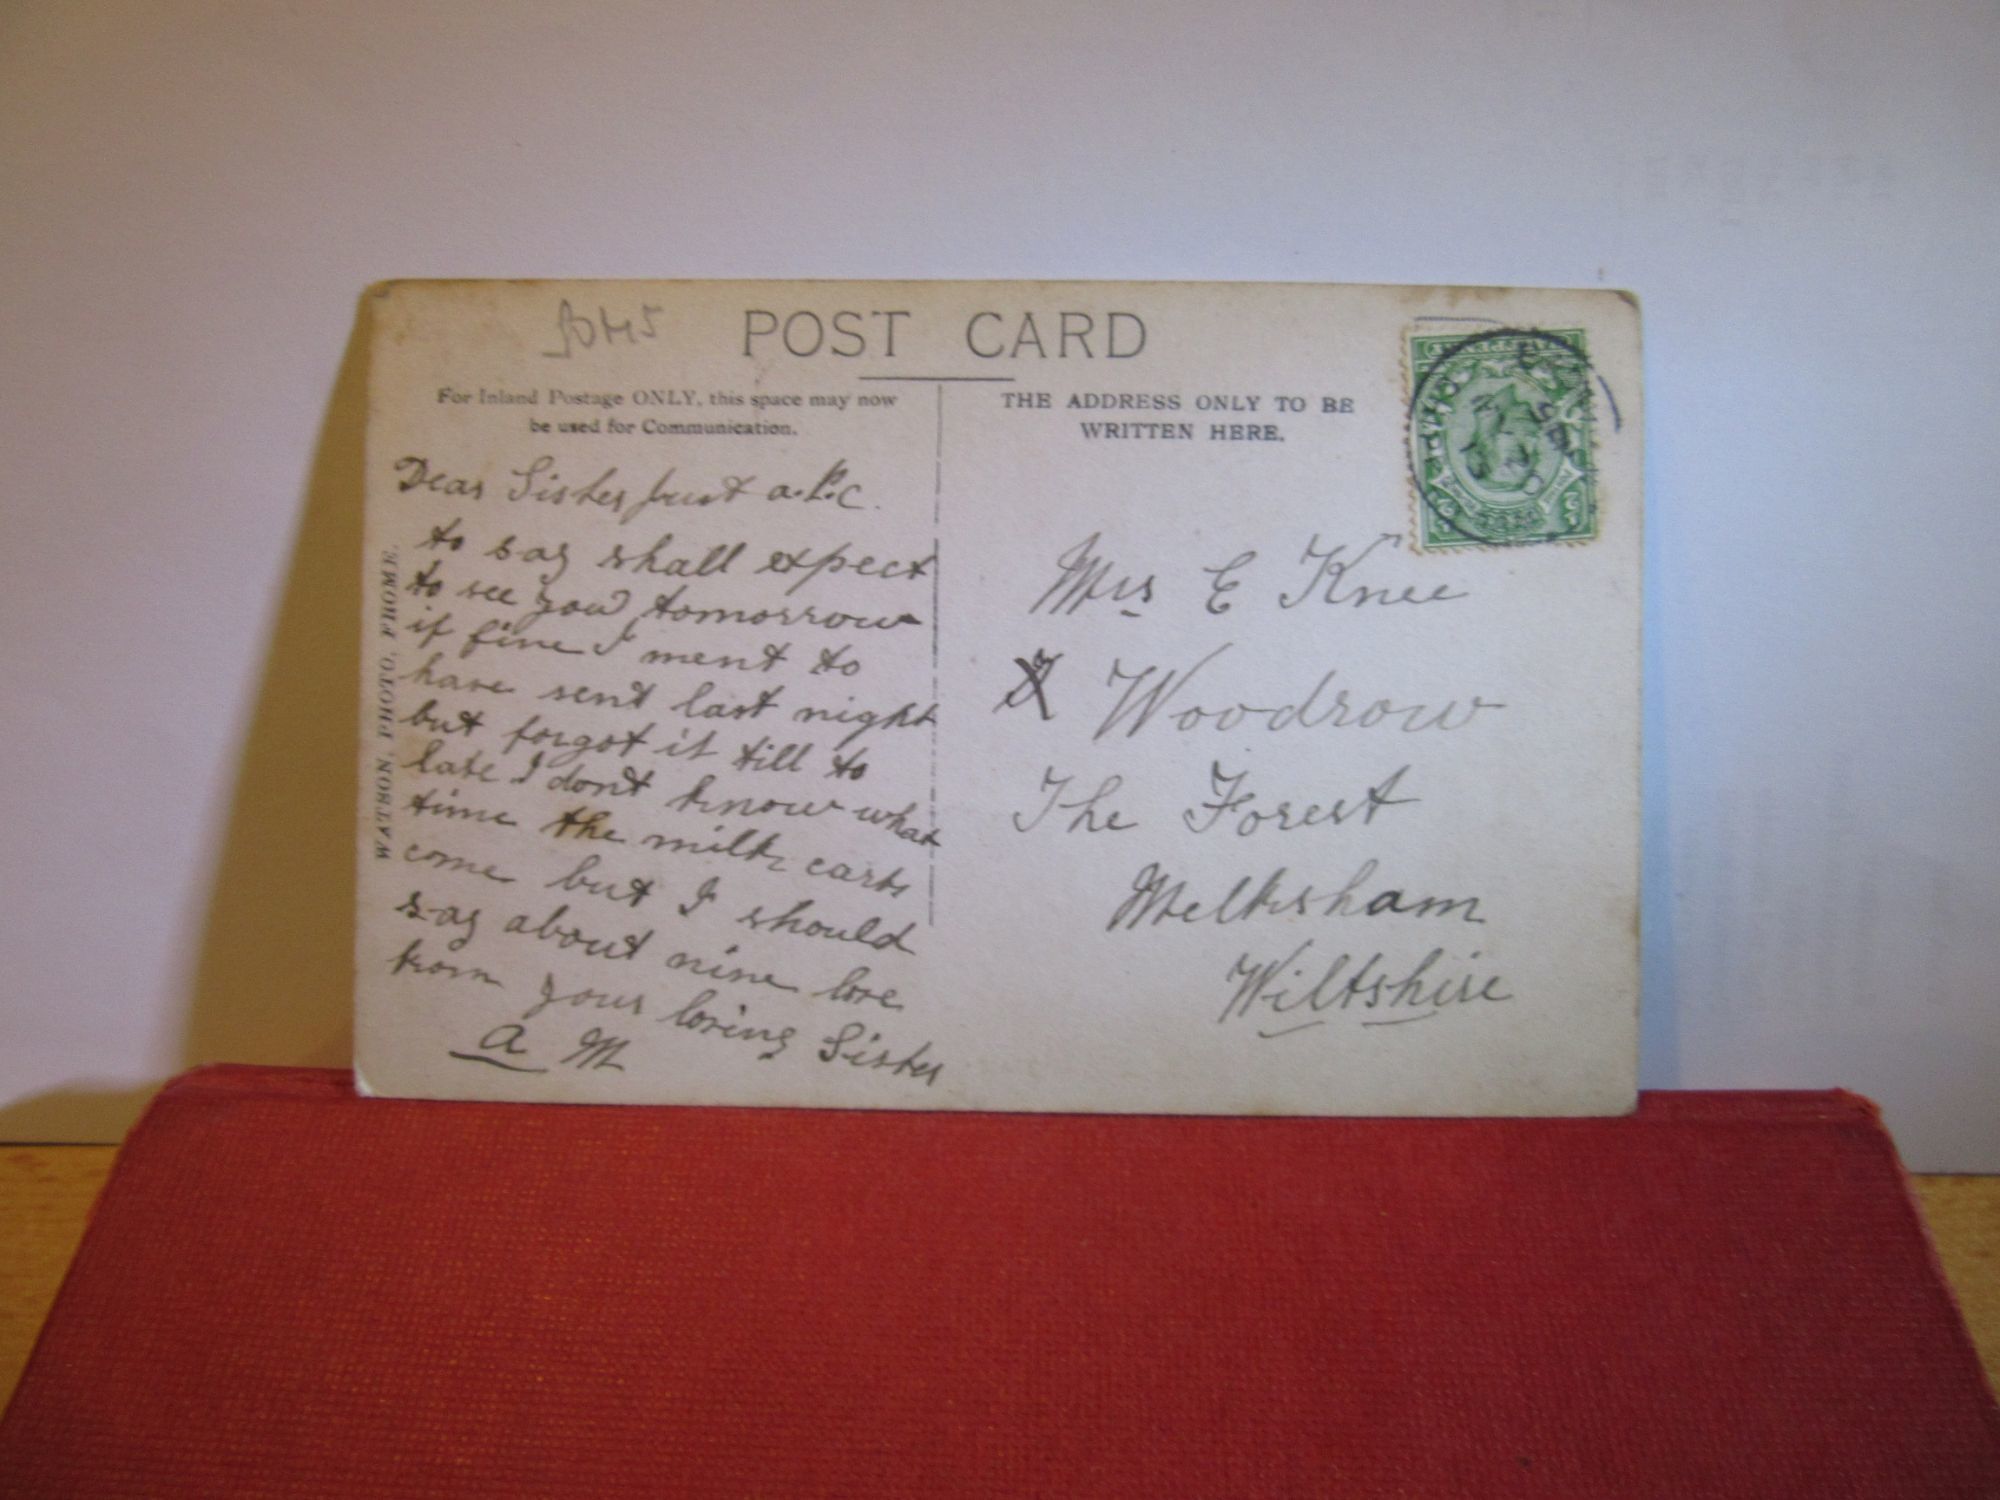 POST CARD
For Inland Postage ONLY, this space may now
be used for Communication.
THE ADDRESS ONLY TO BE
WRITTEN HERE.
Dear Sister just a P.C.
to say shall expect
to see you tomorrow
if fine I ment to
have sent last night
but forgot it till to
late I dont know what
time the milk carts
come but I should
say about nine love
from your loving Sister
A M
WATSON, PHOTO, FROME.
Mrs E Knee
Woodrow
The Forest
Melksham
Wiltshire